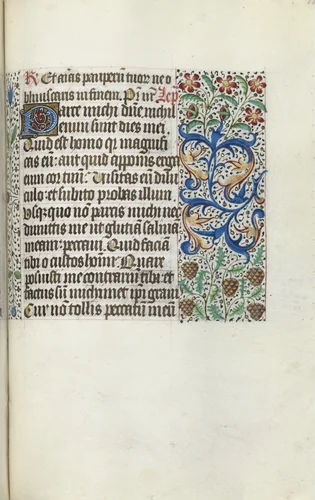 R Et aīas pauperū tuor ne o
bliuiscaris in finem. Pr nr̄ Lec
Parce michi dn̄e nichil
enim sunt dies mei
Quid est homo qr magnifi
cas eū: aut quid apponis erga
eum cor tuū: Visitas eū dilu
culo: et subito probas illum
Usq; quo nō parcis michi nec
dimittis me ut glutiā saliuā
meam: peccaui. Quid faciā
tibi o custos hom̄ Quare
posuisti me contrariū tibi et
factus sū michimet ipi grauis
Cur nō tollis peccatū meū